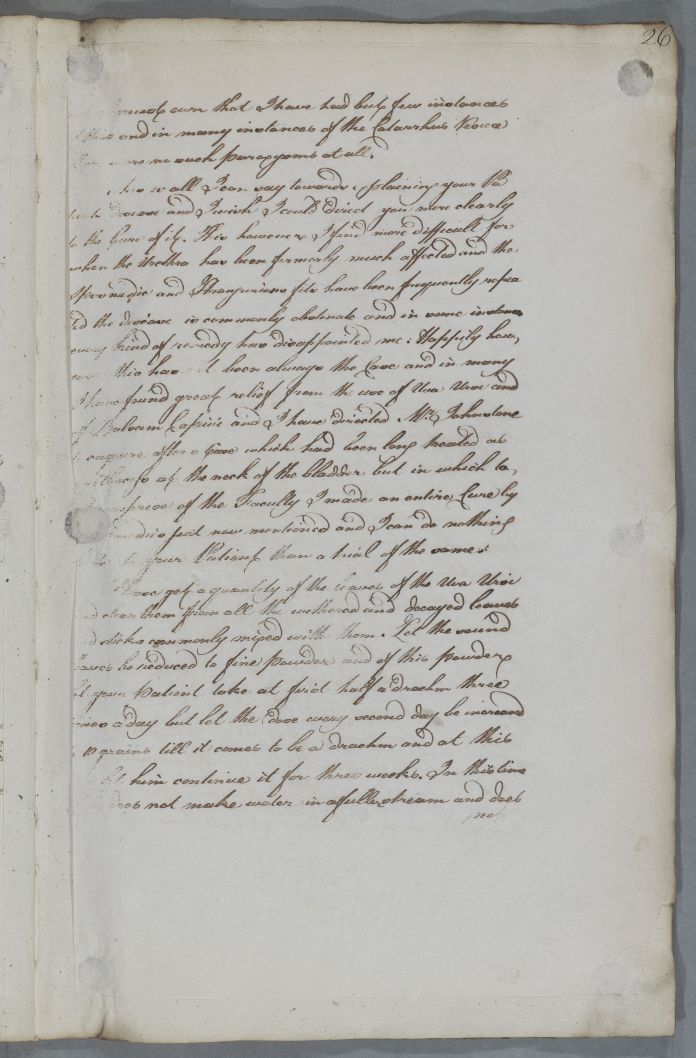 26
must own that I have had but few instances
of this and in many instances of the Catarrhus Vesicæ
there were no such paroxysms at all.
This is all I can say towards explaining your Pa
tients disease and I wish I could direct you more clearly
to the Cure of it. This however I find more difficult for
when the Urethra has been formerly much affected and the
Spasmodic and Strangurious fits have been frequently repea
ted the disease is commonly obstinate and in some instances
every kind of remedy has disappointed me: Happily how,
ever this has not been always the Case and in many
I have found great relief from the use of Uva Ursi and
of Balsam Capivi and I have directed Mr Johnstone
to enquire after a Case which had been long treated as
at the neck of the bladder but in which to,
of the Faculty I made an entire Cure by
just now mentioned and I can do nothing
to your Patient than a trial of the same:
get a quantity of the leaves of the Uva Ursi
and clear them from all the withered and decayed leaves
and sticks commonly mixed with them. Let the sound
leaves be reduced to fine powder and of this powder
let your patient take at first half a drachm three
times a day but let the dose every second day be increased
10 grains till it comes to be a drachm and at this
let him continue it for three weeks. In this time
does not make water in a fuller stream and does
not